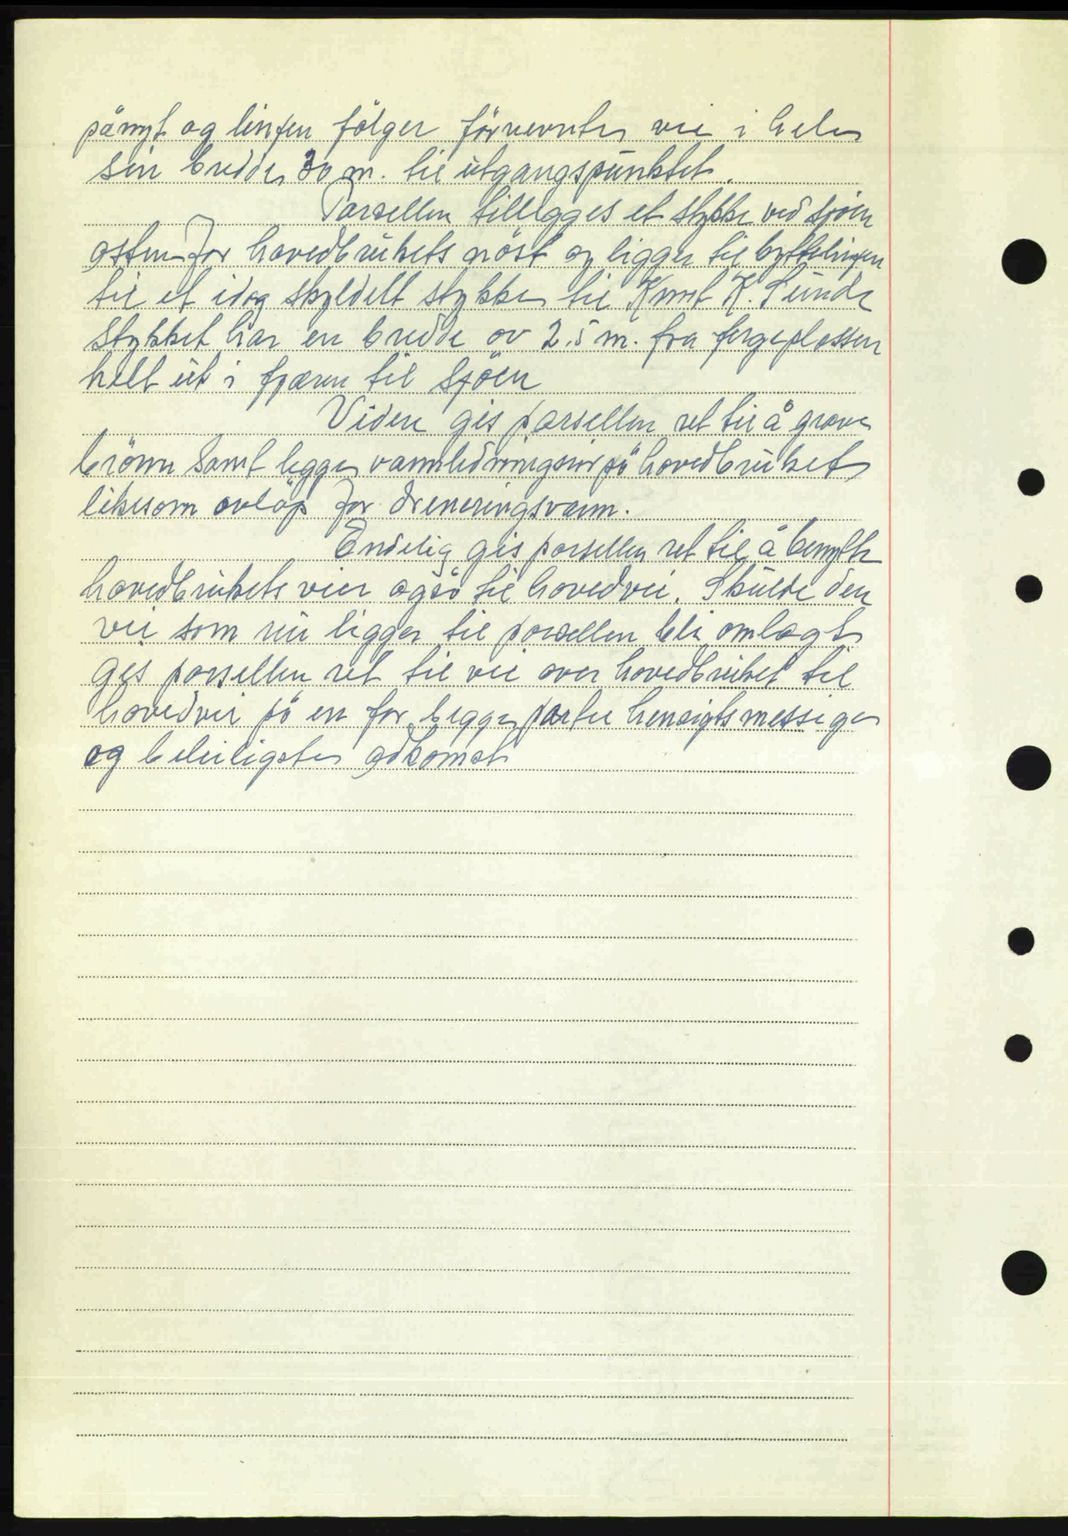 pånyt og linjen følger førnevnte vei i hele
sin bredde 30 m. til utgangspunktet.
Parsellen tillegges et stykke ved sjøen
østen for hovedbrukets nøst og ligger til byttelinjen
til et idag skyldelt stykke til Knut K. Sunde
Stykket har en bredde av 2.5 m. fra fergeplassen
helt ut i fjæren til Sjøen
Videre gis parsellen ret til å grave
brønn samt legge vannledningsrør på hovedbruket
likesom avløp for dreneringsvann.
Endelig gis parsellen ret til å benytte
hovedbrukets veier også til hovedvei. Skulde den
vei som nu ligger til parsellen bli omlagt
gis parsellen ret til vei over hovedbruket til
hovedvei på en for begge parter hensigtsmessige
og beleiligste adkomst